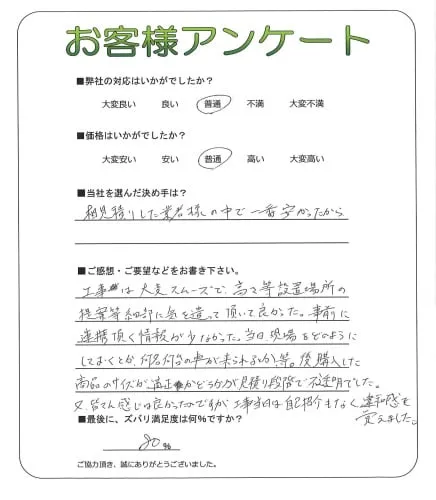 お客様アンケート
■弊社の対応はいかがでしたか？
大変良い 良い 普通 不満 大変不満
■価格はいかがでしたか？
大変安い 安い 普通 高い 大変高い
■当社を選んだ決め手は？
相見積りした業者様の中で一番安かったから
■ご感想・ご要望などをお書き下さい。
工事は大変スムーズで、高さ等設置場所の
提案等細部に気を遣って頂いて良かった。事前に
連携頂く情報が少なかった。当日、現場をどのように
しておくとか、何名何台の車が来られるのか、等。後購入した
商品のサイズが適正かどうかが見積り段階で不透明でした。
又、皆さん感じは良かったのですが工事当日は自己紹介もなく違和感を
覚えました。
■最後に、ズバリ満足度は何％ですか？
80％
ご協力頂き、誠にありがとうございました。